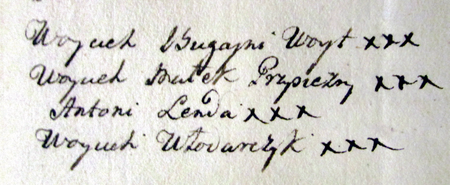 Woyciech Bugayni Woyt xxx
Woyciech Dudek Przysiężny xxx
Antoni Lenda xxx
Woyciech Włodarczyk xxx